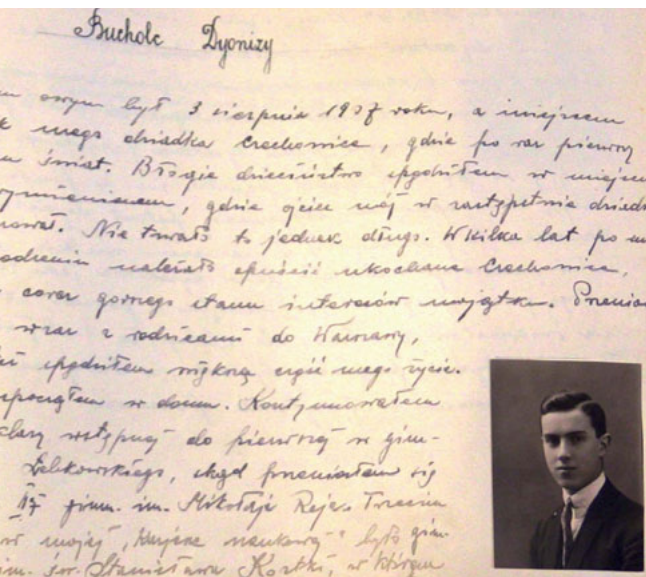 Bucholc Dyonizy
owym był 3 sierpnia 1907 roku, a miejscem
mego dziadka Czechowice, gdzie po raz pierwszy
świat. Błogie dzieciństwo spędziłem w miejscu
gdzie ojciec mój w zastępstwie
Nie trwało to jednak długo. W kilka lat po
należało opuścić ukochane Czechowice,
coraz gorszego stanu interesów majątku.
wraz z rodzicami do Warszawy,
spędziłem większą część mego życia.
w domu. Kontynuowałem
wstępnej do pierwszej w gim-
skąd przeniosłem się
gimn. im. Mikołaja Reja. Trzecim
w mojej "karjerze naukowej" było gim-
im. św. Stanisława Kostki, w którym